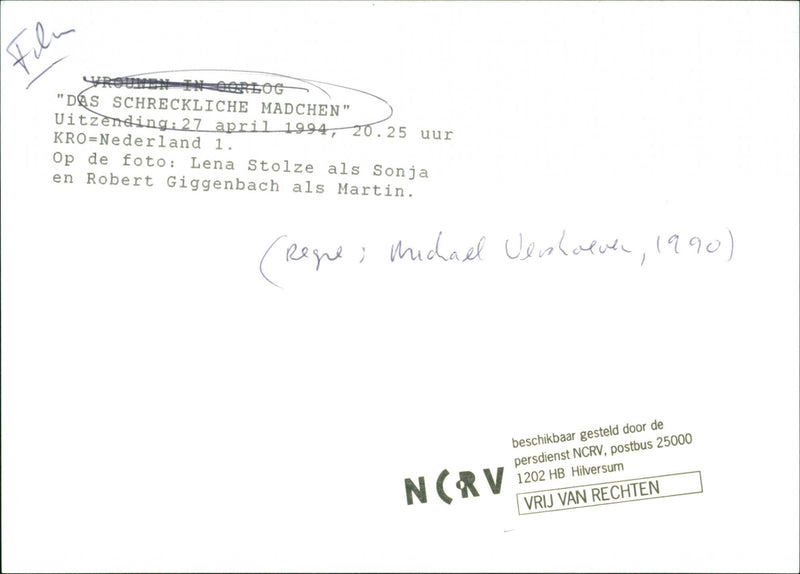 Film
VROUWEN IN OORLOG
"DAS SCHRECKLICHE MADCHEN"
Uitzending:27 april 1994, 20.25 uur
KRO=Nederland 1.
Op de foto: Lena Stolze als Sonja
en Robert Giggenbach als Martin.
(Regie: Michael Verhoeven, 1990)
beschikbaar gesteld door de
persdienst NCRV, postbus 25000
1202 HB Hilversum
NCRV
VRIJ VAN RECHTEN